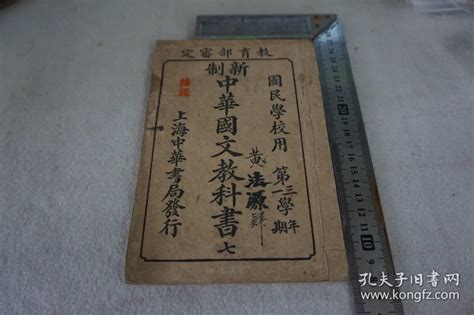 教育部審定
國民學校用
第三一學年期
黃法源
新制
中華國文教科書 七
上海中華書局發行
孔夫子旧书网
kongfz.com